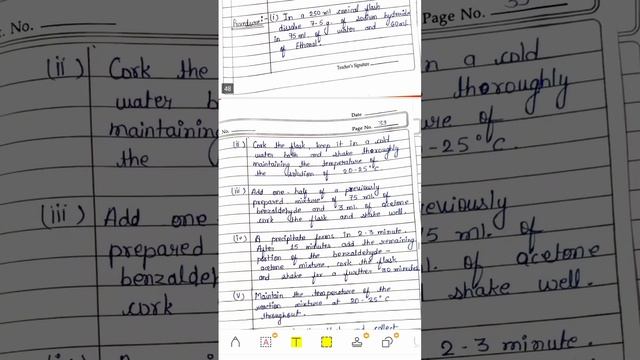 Procedure:- (i) In a 250 ml conical flask
dissolve 7.5 g. of sodium hydroxide
in 75 ml. of water and 60 ml
of Ethanol.
Teacher's Signature
48
Date
Page No. 39
(ii) Cork the flask, keep it in a cold
water bath and shake thoroughly
maintaining the temperature of
the solution of 20-25°C.
(iii) Add one-half of a previously
prepared mixture of 75 ml. of
benzaldehyde and 3 ml. of acetone
cork the flask and shake well.
(iv) A precipitate forms in 2-3 minute.
After 15 minutes add the remaining
portion of the benzaldehyde-
acetone mixture, cork the flask
and shake for a further 30 minutes
(v) Maintain the temperature of the
reaction mixture at 20-25°C
throughout.
collect
No.
(ii) Cork the
water b
maintaining
the
(iii) Add one
prepared
benzaldeh
cork
Page No. 39
n a cold
thoroughly
ure of
-25°C.
eviously
5 ml. of
l. of acetone
shake well.
2-3 minute.